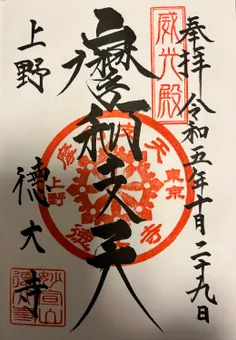 奉拝 令和五年十月二十九日
威光殿
摩利支天
上野
徳大寺
東京
上野
妙宣山
徳大寺